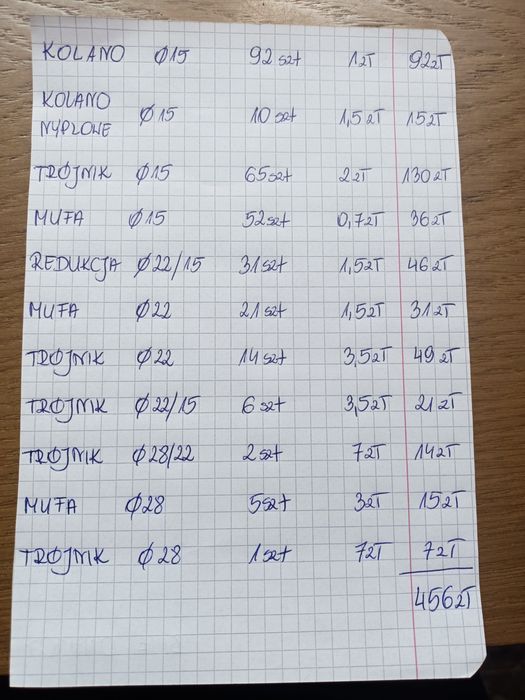 KOLANO Ø15 92 szt 1zł 92zł
KOLANO
NYPLOWE Ø15 10 szt 1,5zł 15zł
TRÓJNIK Ø15 65szt 2zł 130zł
MUFA Ø15 52szt 0,7zł 36zł
REDUKCJA Ø22/15 31szt 1,5zł 46zł
MUFA Ø22 21szt 1,5zł 31zł
TRÓJNIK Ø22 14szt 3,5zł 49zł
TRÓJNIK Ø22/15 6szt 3,5zł 21zł
TRÓJNIK Ø28/22 2szt 7zł 14zł
MUFA Ø28 5szt 3zł 15zł
TRÓJNIK Ø28 1szt 7zł 7zł
456zł